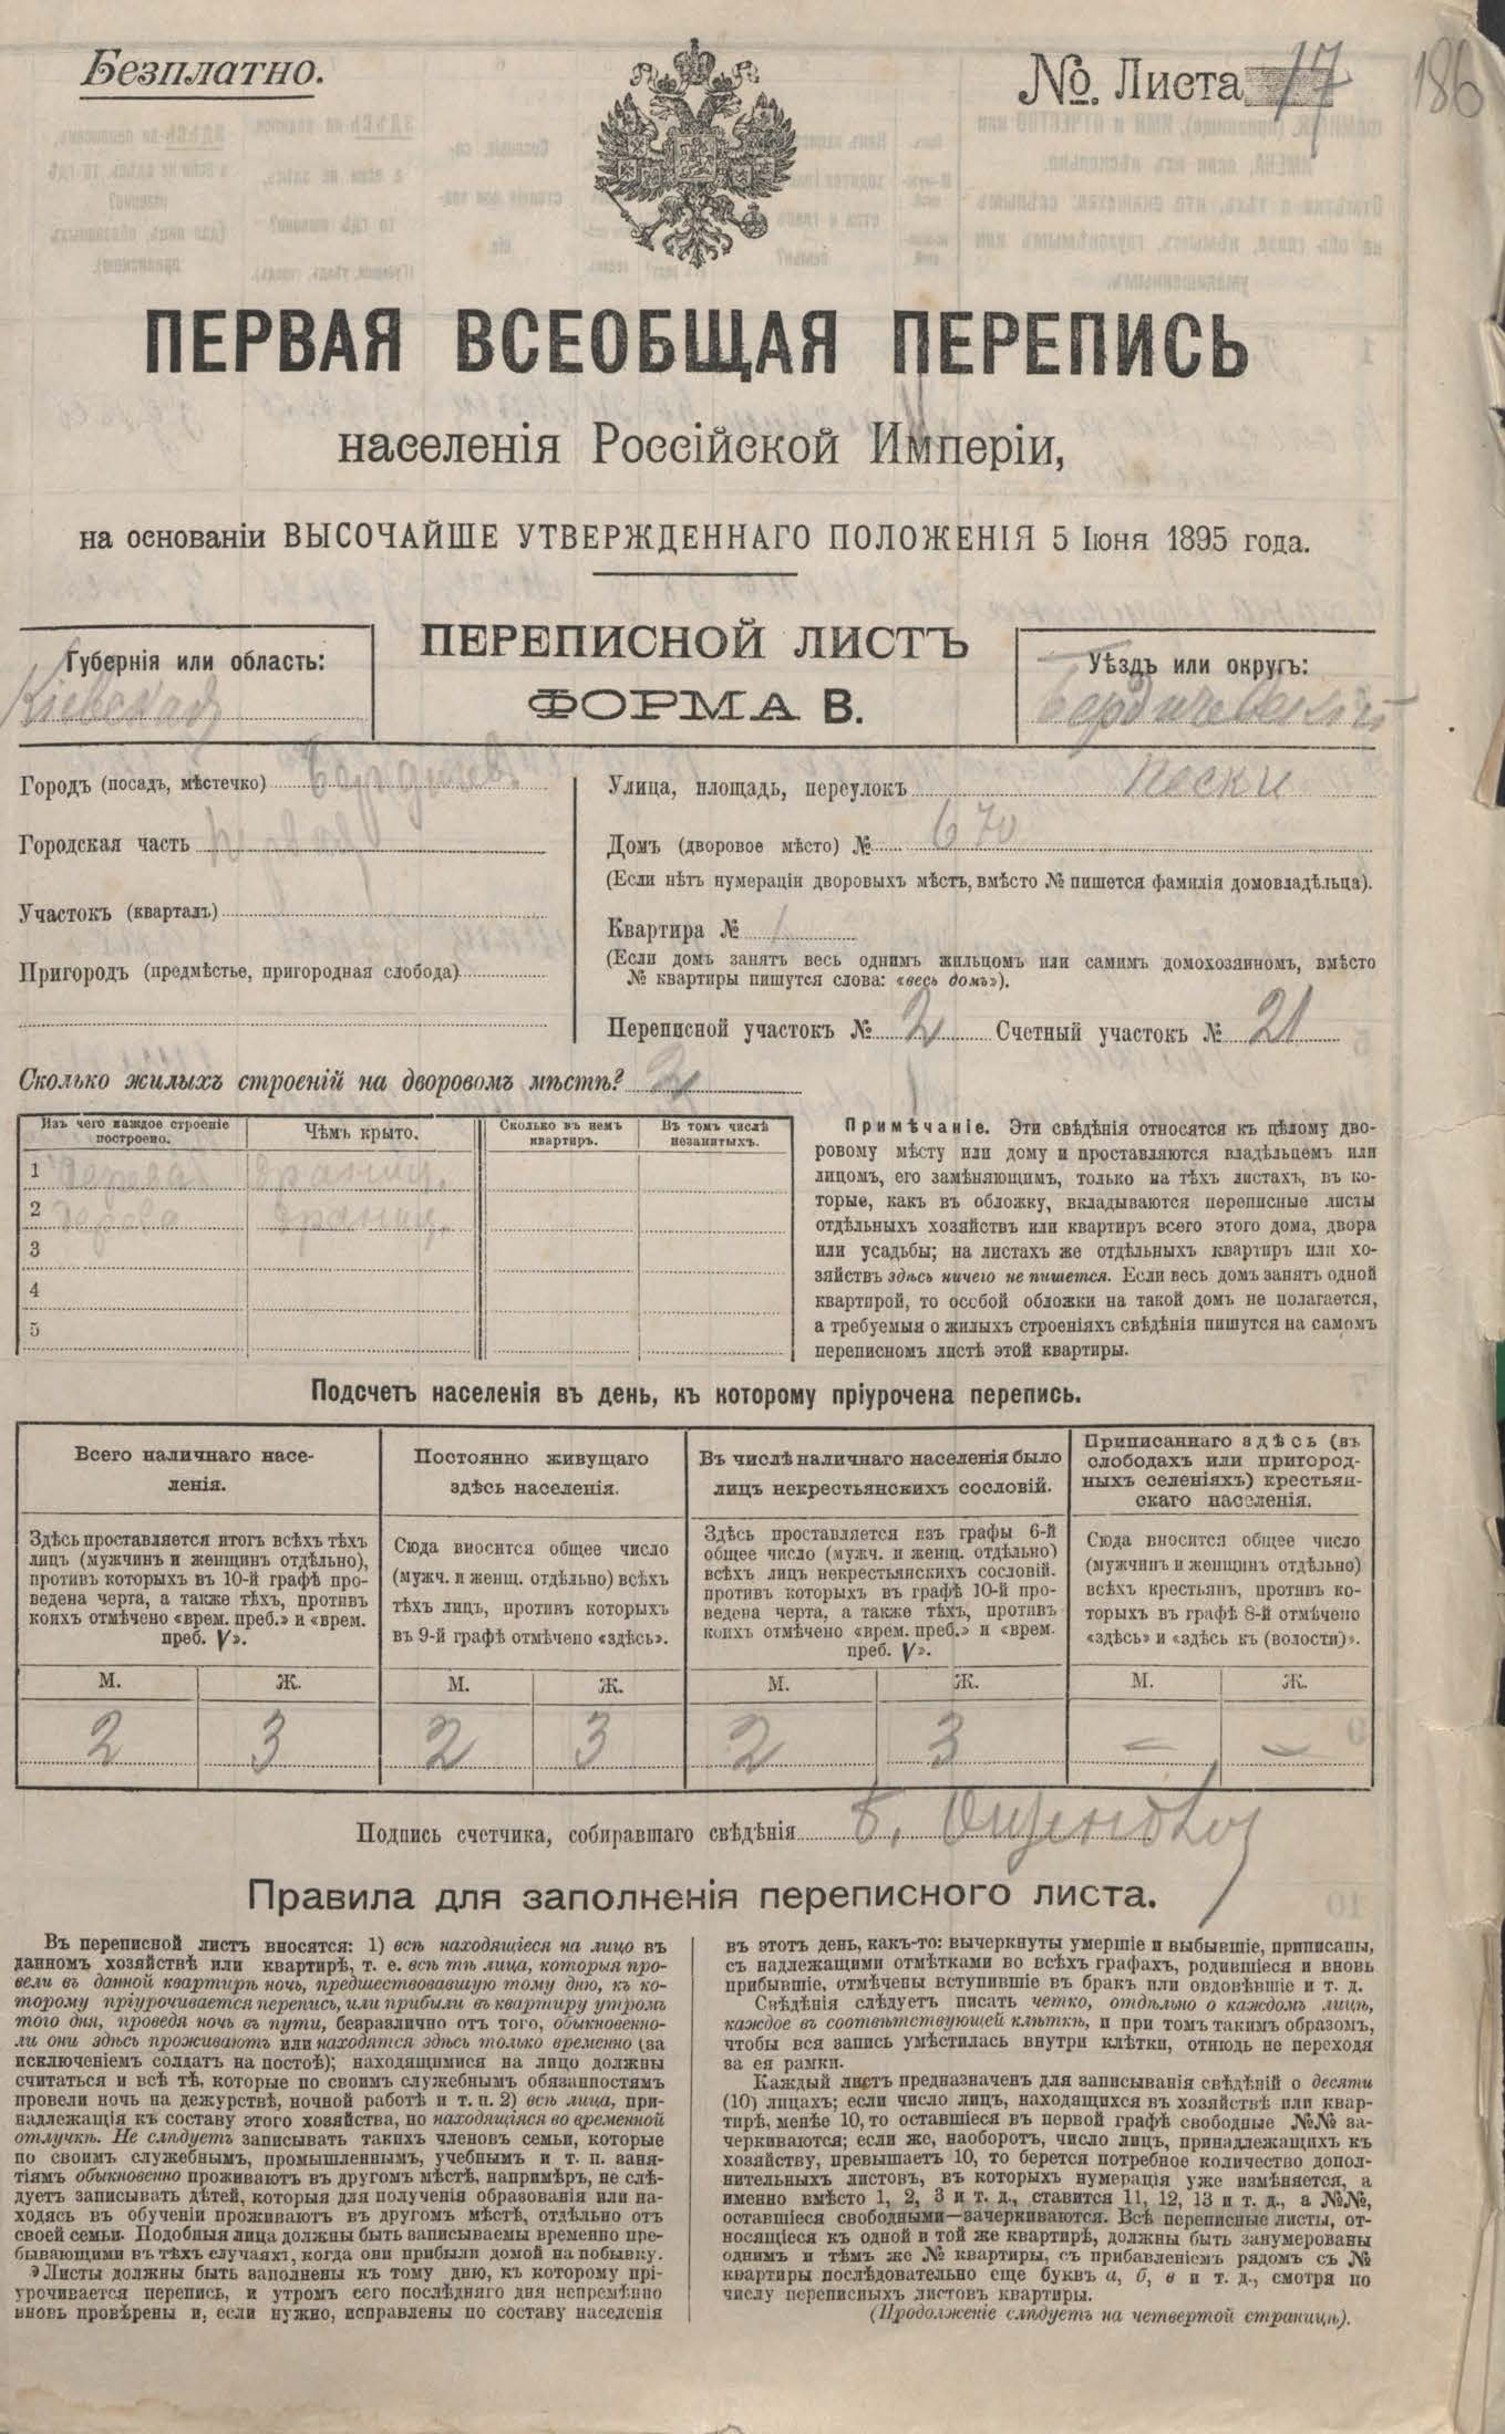 Безплатно.
№. Листа 17
186
ПЕРВАЯ ВСЕОБЩАЯ ПЕРЕПИСЬ
населенія Россійской Имперіи,
на основаніи ВЫСОЧАЙШЕ УТВЕРЖДЕННАГО ПОЛОЖЕНІЯ 5 Іюня 1895 года.
Губернія или область:
Кіевская
ПЕРЕПИСНОЙ ЛИСТЪ
ФОРМА В.
Уѣздъ или округъ:
Бердичевскій
Городъ (посадъ, мѣстечко) Бердичев.
Городская часть
Участокъ (кварталъ)
Пригородъ (предмѣстье, пригородная слобода)
Улица, площадь, переулокъ Пески
Домъ (дворовое мѣсто) № 670
(Если нѣтъ нумераціи дворовыхъ мѣстъ, вмѣсто № пишется фамилія домовладѣльца).
Квартира № 1
(Если домъ занятъ весь однимъ жильцомъ или самимъ домохозяиномъ, вмѣсто
№ квартиры пишутся слова: «весь домъ»).
Переписной участокъ № 2 Счетный участокъ № 21
Сколько жилыхъ строеній на дворовомъ мѣстѣ? 2
Изъ чего каждое строеніе
построено.
Чѣмъ крыто.
Сколько въ немъ
квартиръ.
Въ томъ числѣ
незанятыхъ.
1
2
3
4
5
Примѣчаніе. Эти свѣдѣнія относятся къ цѣлому дво-
ровому мѣсту или дому и проставляются владѣльцемъ или
лицомъ, его замѣняющимъ, только на тѣхъ листахъ, въ ко-
торые, какъ въ обложку, вкладываются переписные листы
отдѣльныхъ хозяйствъ или квартиръ всего этого дома, двора
или усадьбы; на листахъ же отдѣльныхъ квартиръ или хо-
зяйствъ здѣсь ничего не пишется. Если весь домъ занятъ одной
квартирой, то особой обложки на такой домъ не полагается,
а требуемыя о жилыхъ строеніяхъ свѣдѣнія пишутся на самомъ
переписномъ листѣ этой квартиры.
Подсчетъ населенія въ день, къ которому пріурочена перепись.
Всего наличнаго насе-
ленія.
Постоянно живущаго
здѣсь населенія.
Въ числѣ наличнаго населенія было
лицъ некрестьянскихъ сословій.
Приписаннаго здѣсь (въ
слободахъ или пригород-
ныхъ селеніяхъ) крестьян-
скаго населенія.
Здѣсь проставляется итогъ всѣхъ тѣхъ
лицъ (мужчинъ и женщинъ отдѣльно),
противъ которыхъ въ 10-й графѣ про-
ведена черта, а также тѣхъ, противъ
коихъ отмѣчено «врем. преб.» и «врем.
преб. V».
Сюда вносится общее число
(мужч. и женщ. отдѣльно) всѣхъ
тѣхъ лицъ, противъ которыхъ
въ 9-й графѣ отмѣчено «здѣсь».
Здѣсь проставляется изъ графы 6-й
общее число (мужч. и женщ. отдѣльно)
всѣхъ лицъ некрестьянскихъ сословій.
противъ которыхъ въ графѣ 10-й про-
ведена черта, а также тѣхъ, противъ
коихъ отмѣчено «врем. преб.» и «врем.
преб. V».
Сюда вносится общее число
(мужчинъ и женщинъ отдѣльно)
всѣхъ крестьянъ, противъ ко-
торыхъ въ графѣ 8-й отмѣчено
«здѣсь» и «здѣсь къ (волости)».
М. Ж. М. Ж. М. Ж. М. Ж.
2 3 2 3 2 3 – –
Подпись счетчика, собиравшаго свѣдѣнія
Правила для заполненія переписного листа.
Въ переписной листъ вносятся: 1) всѣ находящіеся на лицо въ
данномъ хозяйствѣ или квартирѣ, т. е. всѣ тѣ лица, которыя про-
вели въ данной квартирѣ ночь, предшествовавшую тому дню, къ ко-
торому пріурочивается перепись, или прибыли въ квартиру утромъ
того дня, проведя ночь въ пути, безразлично отъ того, обыкновенно-
ли они здѣсь проживаютъ или находятся здѣсь только временно (за
исключеніемъ солдатъ на постоѣ); находящимися на лицо должны
считаться и всѣ тѣ, которые по своимъ служебнымъ обязанностямъ
провели ночь на дежурствѣ, ночной работѣ и т. п. 2) всѣ лица, при-
надлежащія къ составу этого хозяйства, но находящіяся во временной
отлучкѣ. Не слѣдуетъ записывать такихъ членовъ семьи, которые
по своимъ служебнымъ, промышленнымъ, учебнымъ и т. п. заня-
тіямъ обыкновенно проживаютъ въ другомъ мѣстѣ, напримѣръ, не слѣ-
дуетъ записывать дѣтей, которыя для полученія образованія или на-
ходясь въ обученіи проживаютъ въ другомъ мѣстѣ, отдѣльно отъ
своей семьи. Подобныя лица должны быть записываемы временно пре-
бывающими въ тѣхъ случаяхъ, когда они прибыли домой на побывку.
Листы должны быть заполнены къ тому дню, къ которому прі-
урочивается перепись, и утромъ сего послѣдняго дня непремѣнно
вновь провѣрены и, если нужно, исправлены по составу населенія
въ этотъ день, какъ-то: вычеркнуты умершіе и выбывшіе, приписаны,
съ надлежащими отмѣтками во всѣхъ графахъ, родившіеся и вновь
прибывшіе, отмѣчены вступившіе въ бракъ или овдовѣвшіе и т. д.
Свѣдѣнія слѣдуетъ писать четко, отдѣльно о каждомъ лицѣ,
каждое въ соотвѣтствующей клѣткѣ, и при томъ такимъ образомъ,
чтобы вся запись умѣстилась внутри клѣтки, отнюдь не переходя
за ея рамки.
Каждый листъ предназначенъ для записыванія свѣдѣній о десяти
(10) лицахъ; если число лицъ, находящихся въ хозяйствѣ или квар-
тирѣ, менѣе 10, то оставшіеся въ первой графѣ свободные №№ за-
черкиваются; если же, наоборотъ, число лицъ, принадлежащихъ къ
хозяйству, превышаетъ 10, то берется потребное количество допол-
нительныхъ листовъ, въ которыхъ нумерація уже измѣняется, а
именно вмѣсто 1, 2, 3 и т. д., ставится 11, 12, 13 и т. д., а №№,
оставшіеся свободными—зачеркиваются. Всѣ переписные листы, от-
носящіеся къ одной и той же квартирѣ, должны быть занумерованы
однимъ и тѣмъ же № квартиры, съ прибавленіемъ рядомъ съ №
квартиры послѣдовательно еще буквъ а, б, в и т. д., смотря по
числу переписныхъ листовъ квартиры.
(Продолженіе слѣдуетъ на четвертой страницѣ).